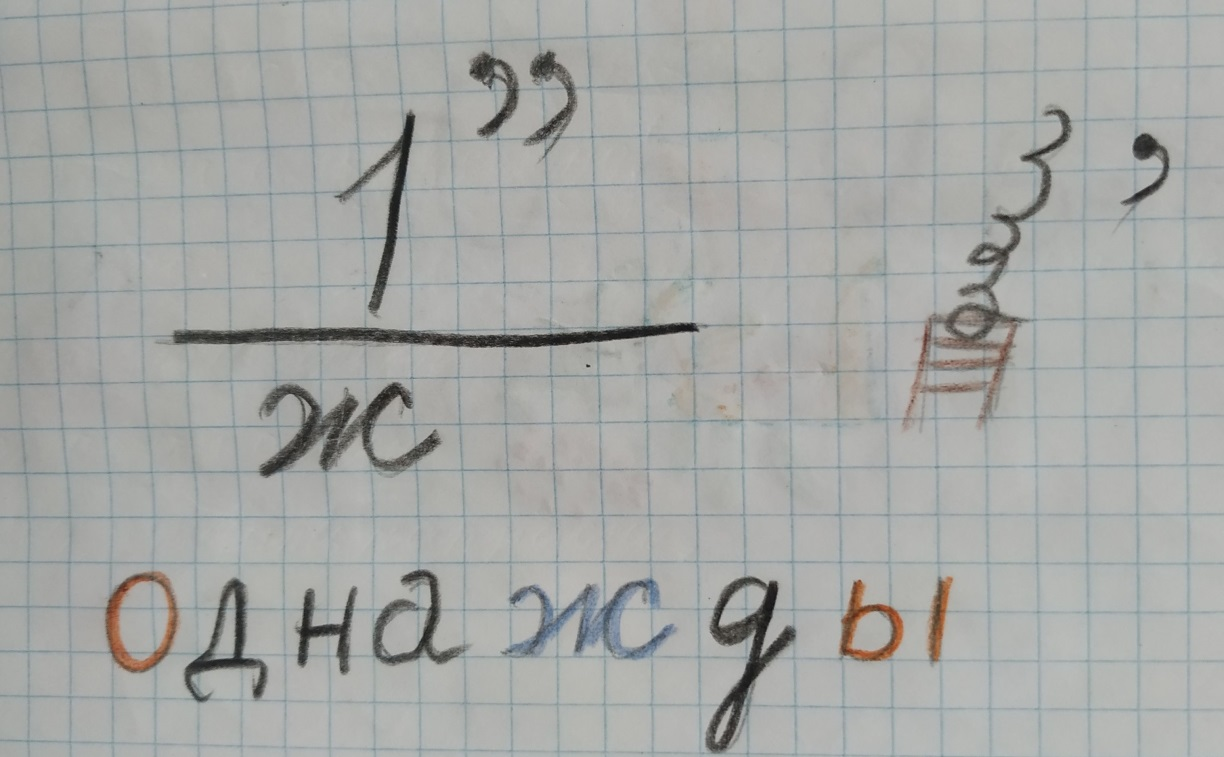 1 ,, ,
ж
однажды